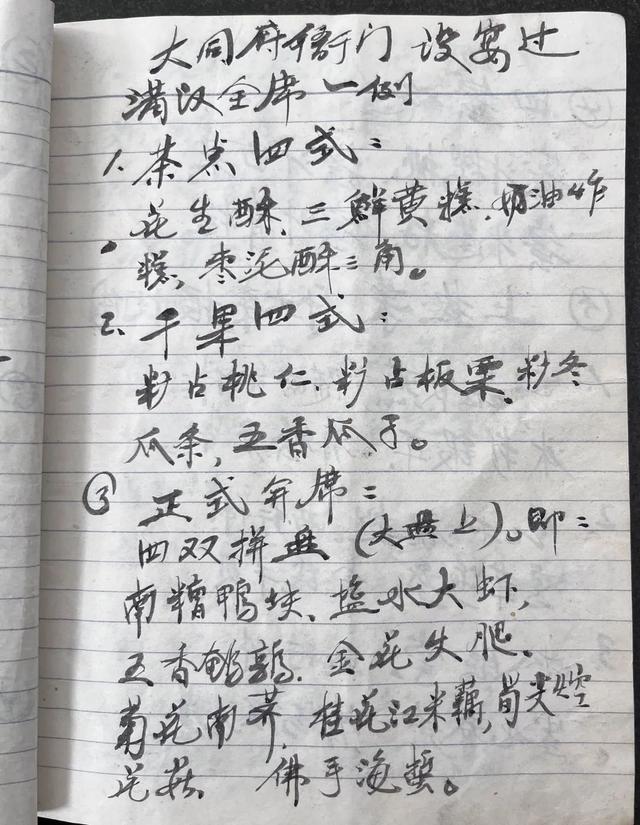 大同府衙门设宴过
满汉全席一例
1. 茶点四式：
花生酥、三鲜黄糕、奶油炸
糕，枣泥酥三角。
2、干果四式：
粘桃仁、粘板栗、冬
瓜条，五香瓜子。
③ 正式弁席：
四双拼盘（大盘上）。即：
南糟鸭块、盐水大虾，
五香鹌鹑、金花失肥、
菊花南荠，桂花江米藕，笋尖
花菇、佛手海蜇。